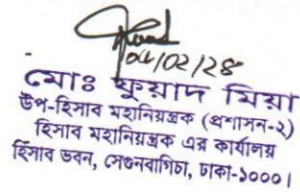 মোঃ ফুয়াদ মিয়া
উপ-হিসাব মহানিয়ন্ত্রক (প্রশাসন-২)
হিসাব মহানিয়ন্ত্রক এর কার্যালয়
হিসাব ভবন, সেগুনবাগিচা, ঢাকা-১০০০।